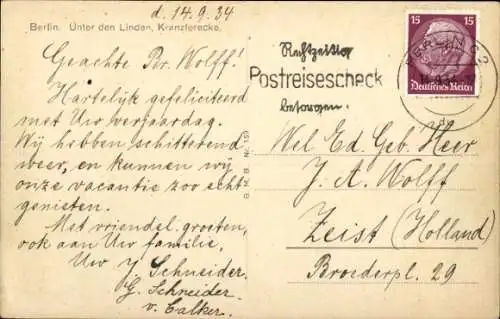 d. 14.9.34
Berlin. Unter den Linden, Kranzlerecke.
Geachte Br. Wolff!
Hartelijk gefeliciteerd
met Uw verjaardag.
Wij hebben schitterend
weer, en kunnen wij
onze vacantie zoo echt
genieten.
Met vriendel. groeten,
ook aan Uw familie,
Uw J. Schneider.
G. Schneider
v. Calker.
G. M. B. Nr. 151
Rechtzeitig
Postreisescheck
besorgen.
15 15
Deutsches Reich
BERLIN C2
Wel Ed. Geb. Heer
J. A. Wolff
Zeist (Holland)
Broederpl. 29